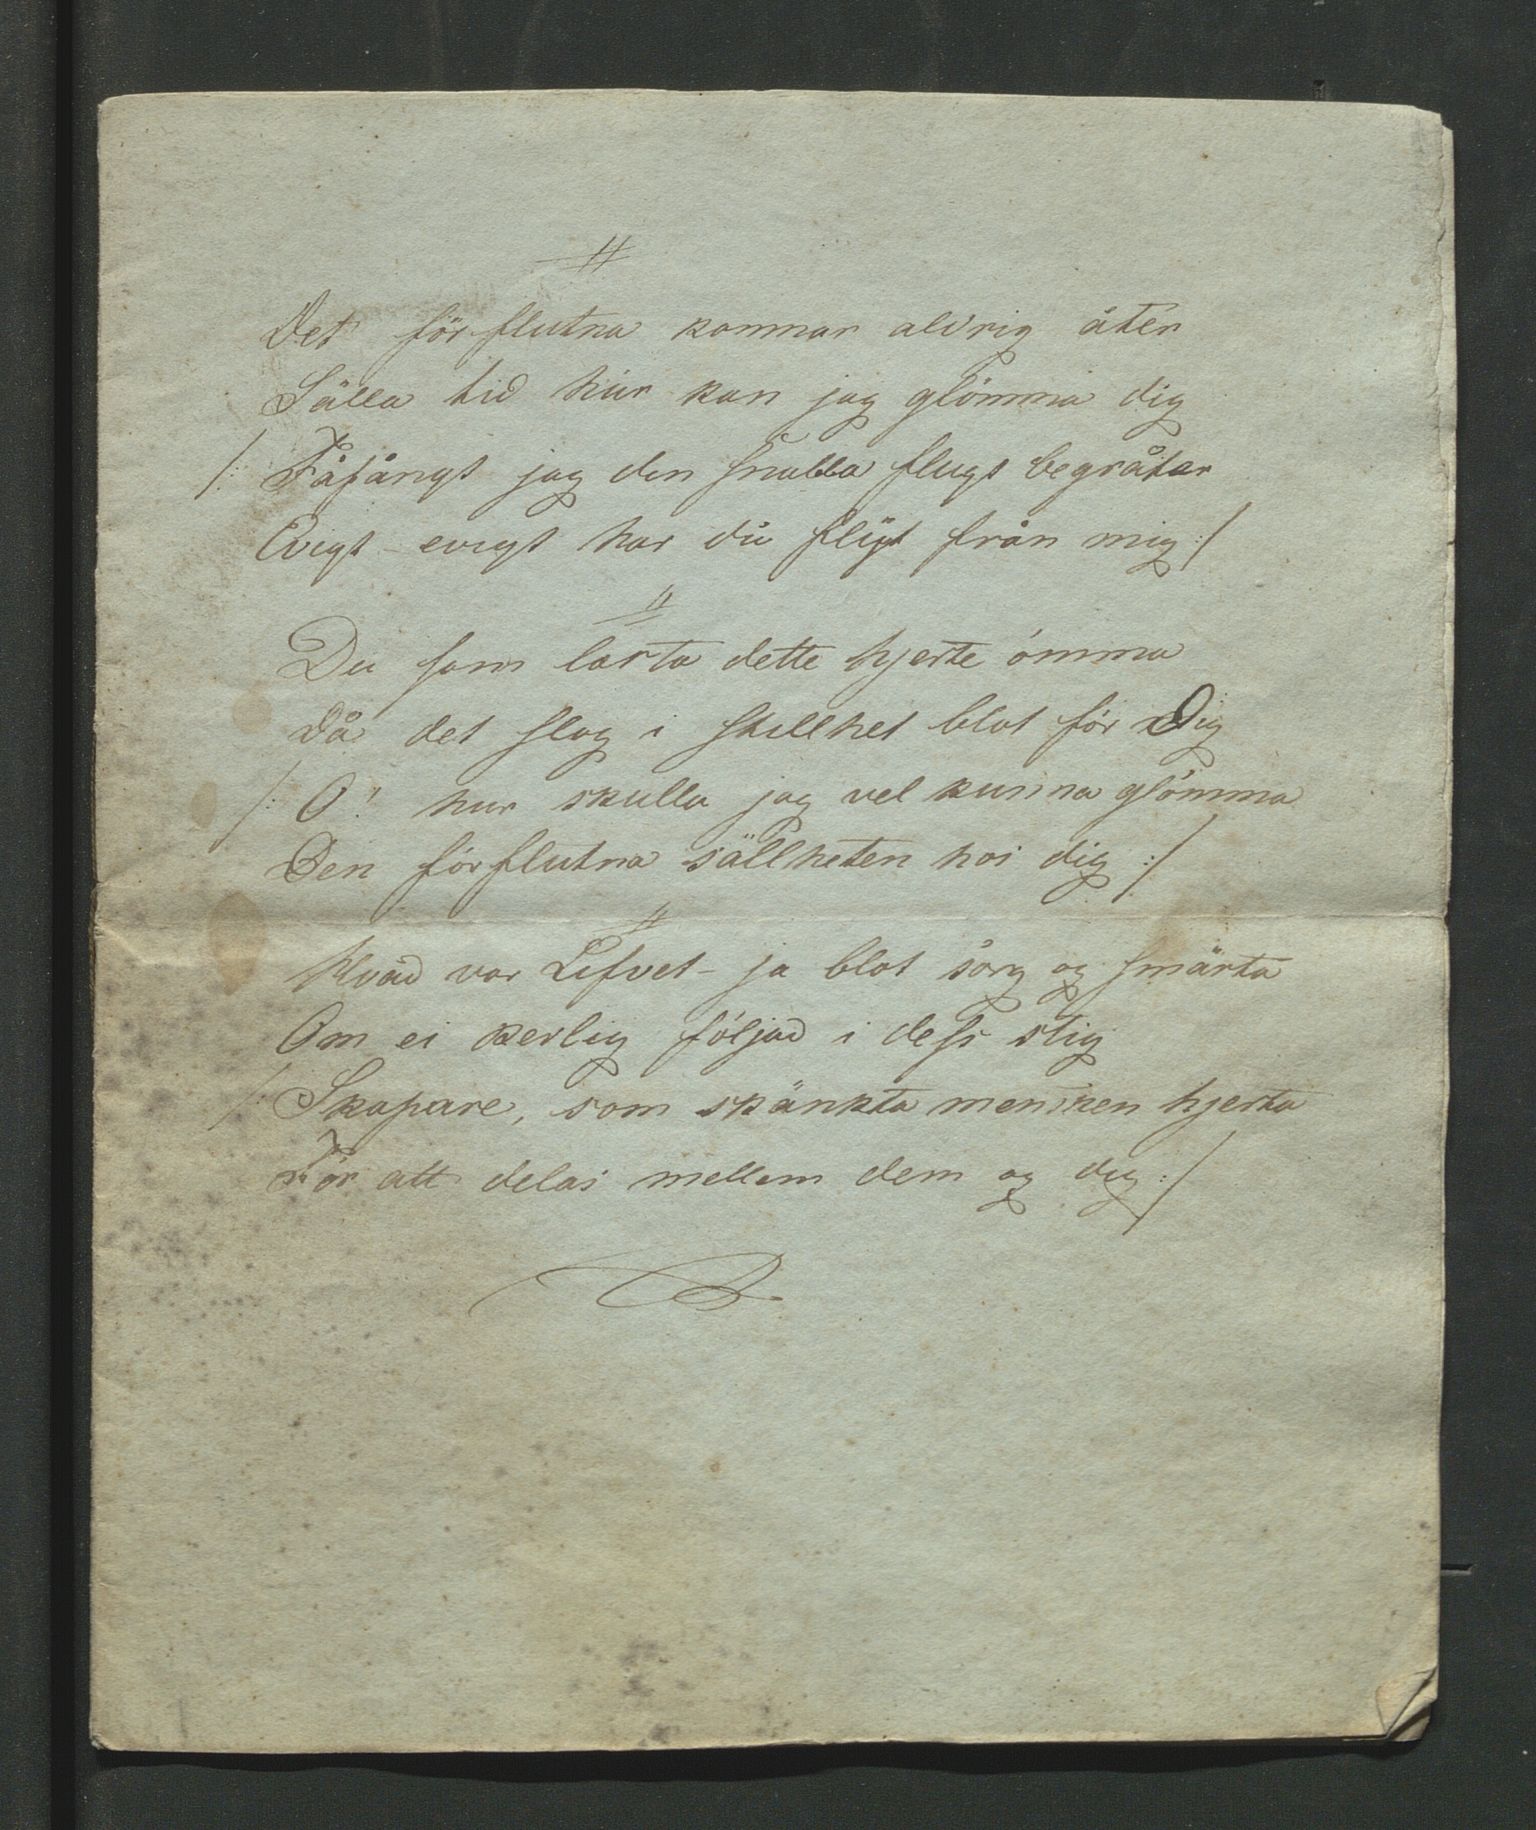 Det förflutna kommar aldrig åter
Sälla tid hur kan jag glömma dig
/: Fåfängt jag den snabba flugt begråter
Evigt evigt har du flÿt från mig :/
Du som lärta dette hjerte ömma
Då det slog i stillhet blot för Dig
/: O! hur skulla jag vel kunna glömma
Den förflutna sällheten hos dig :/
Hvad var Lifvet - ja blot sorg og smärta
Om ei kerlig följad i dess stig
/: Skapare, som skänkta mensken hjerta
För att delas mellem dem og dig :/